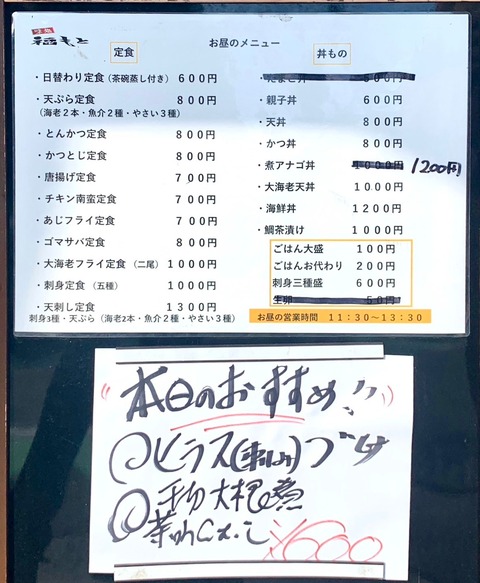 福もと
お昼のメニュー
定食
・日替わり定食(茶碗蒸し付き) 600円
・天ぷら定食 800円
(海老2本・魚介2種・やさい3種)
・とんかつ定食 800円
・かつとじ定食 800円
・唐揚げ定食 700円
・チキン南蛮定食 700円
・あじフライ定食 700円
・ゴマサバ定食 800円
・大海老フライ定食 (二尾) 1000円
・刺身定食 (五種) 1000円
・天刺し定食 1300円
刺身3種・天ぷら(海老2本・魚介2種・やさい3種)
丼もの
・親子丼 600円
・天丼 800円
・かつ丼 800円
・煮アナゴ丼 1000円 1200円
・大海老天丼 1000円
・海鮮丼 1200円
・鯛茶漬け 1000円
ごはん大盛 100円
ごはんお代わり 200円
刺身三種盛 600円
生卵 50円
お昼の営業時間 11:30~13:30
本日のおすすめ!!
ヒラス(刺身)
大根煮
¥600